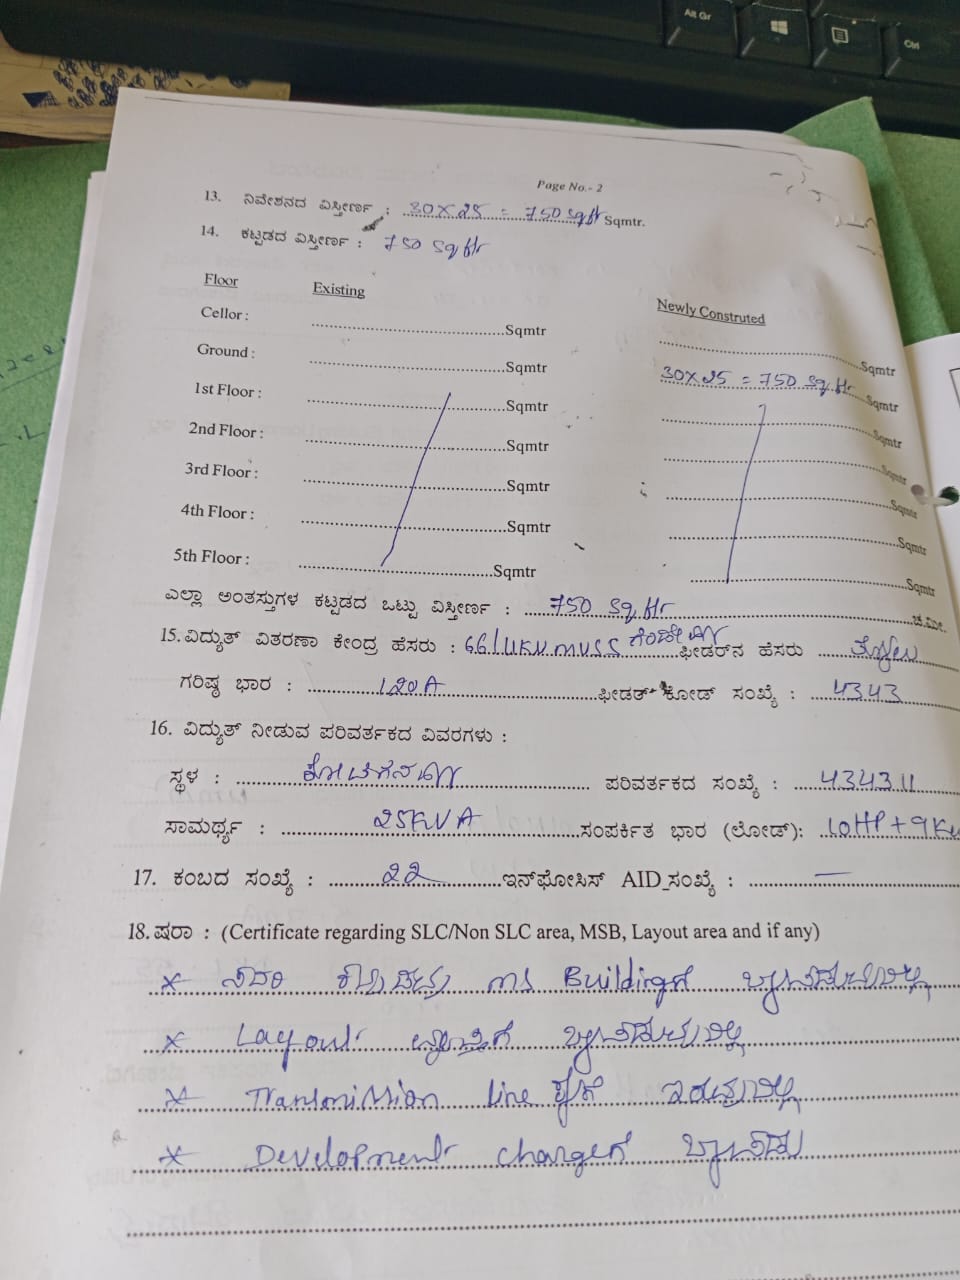 Alt Gr
Ctrl
Page No.- 2
13. ನಿವೇಶನದ ವಿಸ್ತೀರ್ಣ : 30 X 25 = 750 Sqftr Sqmtr.
14. ಕಟ್ಟಡದ ವಿಸ್ತೀರ್ಣ : 750 Sqftr
Floor Existing Newly Construted
Cellor : Sqmtr Sqmtr
Ground : Sqmtr 30X25 = 750 Sqftr Sqmtr
1st Floor : Sqmtr Sqmtr
2nd Floor : Sqmtr Sqmtr
3rd Floor : Sqmtr Sqmtr
4th Floor : Sqmtr Sqmtr
5th Floor : Sqmtr Sqmtr
ಎಲ್ಲಾ ಅಂತಸ್ತುಗಳ ಕಟ್ಟಡದ ಒಟ್ಟು ವಿಸ್ತೀರ್ಣ : 750 Sqftr ಚ.ಮೀ.
15. ವಿದ್ಯುತ್ ವಿತರಣಾ ಕೇಂದ್ರ ಹೆಸರು : 66/11KV MUSS ಫೀಡರ್‌ನ ಹೆಸರು
ಗರಿಷ್ಠ ಭಾರ : 120A ಫೀಡರ್ ಕೋಡ್ ಸಂಖ್ಯೆ : 4343
16. ವಿದ್ಯುತ್ ನೀಡುವ ಪರಿವರ್ತಕದ ವಿವರಗಳು :
ಸ್ಥಳ : ಪರಿವರ್ತಕದ ಸಂಖ್ಯೆ : 434311
ಸಾಮರ್ಥ್ಯ : 25KVA ಸಂಪರ್ಕಿತ ಭಾರ (ಲೋಡ್): 10HP + 9K
17. ಕಂಬದ ಸಂಖ್ಯೆ : 22 ಇನ್‌ಫೋಸಿಸ್ AID ಸಂಖ್ಯೆ : —
18. ಷರಾ : (Certificate regarding SLC/Non SLC area, MSB, Layout area and if any)
* ಸದರಿ ಕಟ್ಟಡವು ms Buildingಗೆ ಒಳಪಡುವುದಿಲ್ಲ
* Layout ವ್ಯಾಪ್ತಿಗೆ ಒಳಪಡುವುದಿಲ್ಲ
* Transmission line ಕೆಳಗೆ ಇರುವುದಿಲ್ಲ
* Development chargesಗೆ ಒಳಪಡು